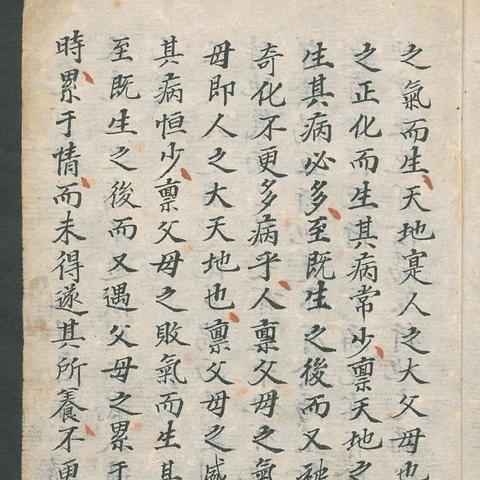 之氣而生天地寔人之大父母也
之正化而生其病常少禀天地之
生其病必多至既生之後而又被
奇化不更多病乎人禀父母之氣
母即人之大天地也禀父母之盛
其病恒少禀父母之敗氣而生其
至既生之後而又遇父母之累于
時累于情而未得遂其所養不更